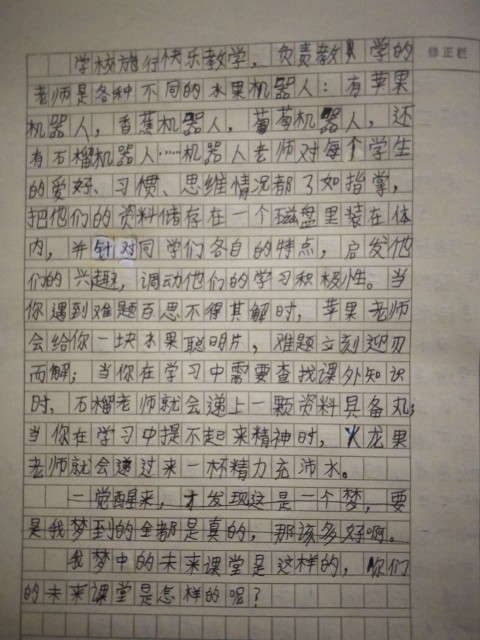 修正栏
学校施行快乐教学，负责教具学的
老师是各种不同的水果机器人：有苹果
机器人，香蕉机器人，葡萄机器人，还
有石榴机器人……机器人老师对每个学生
的爱好、习惯、思维情况都了如指掌，
把他们的资料储存在一个磁盘里装在体
内，并针对同学们各自的特点，启发他
们的兴趣，调动他们的学习积极性。当
你遇到难题百思不得其解时，苹果老师
会给你一块水果聪明片，难题立刻迎刃
而解；当你在学习中需要查找课外知识
时，石榴老师就会递上一颗资料具备丸；
当你在学习中提不起来精神时，火龙果
老师就会递过来一杯精力充沛水。
一觉醒来，才发现这是一个梦，要
是我梦到的全都是真的，那该多好啊。
我梦中的未来课堂是这样的，你们
的未来课堂是怎样的呢？